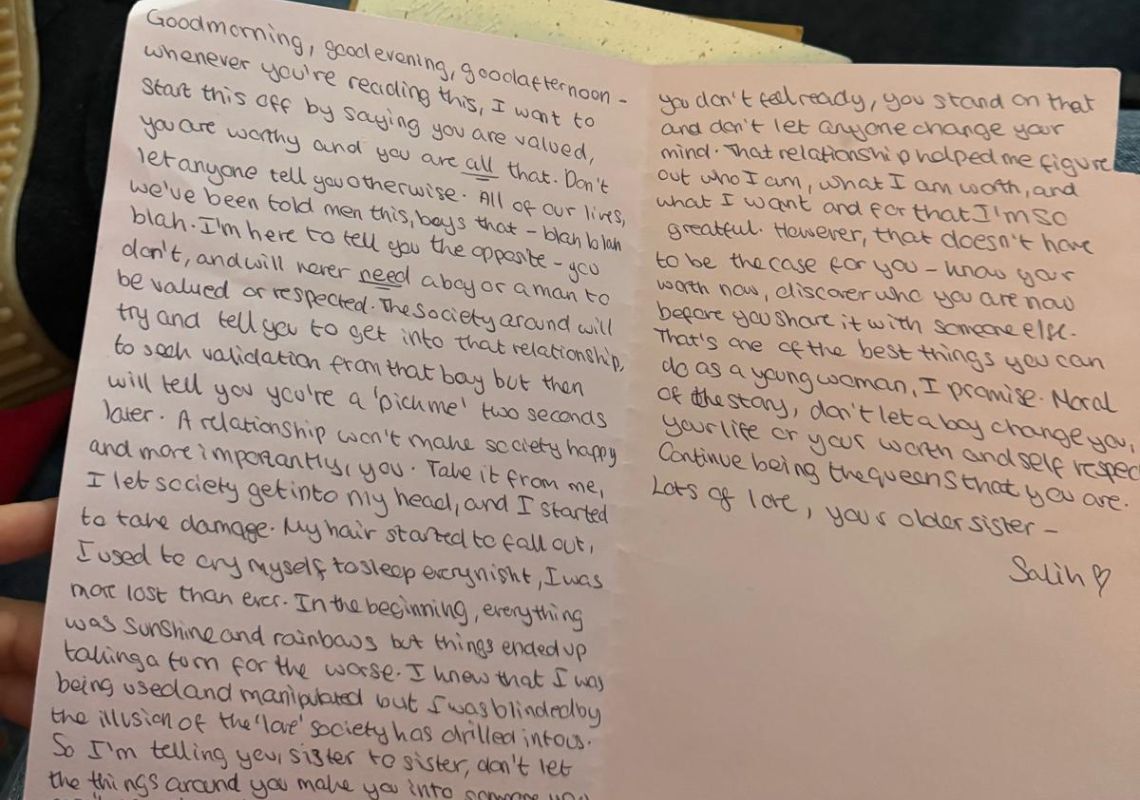 Goodmorning, goodevening, goodafternoon -
whenever you're reading this, I want to
start this off by saying you are valued,
you are worthy and you are all that. Don't
let anyone tell you otherwise. All of our lives,
we've been told men this, boys that - blah blah
blah. I'm here to tell you the opposite - you
don't, and will never need a boy or a man to
be valued or respected. The society around will
try and tell you to get into that relationship,
to seek validation from that boy but then
will tell you you're a 'pick me' two seconds
later. A relationship won't make society happy
and more importantly, you. Take it from me,
I let society get into my head, and I started
to take damage. My hair started to fall out,
I used to cry myself to sleep every night, I was
more lost than ever. In the beginning, everything
was sunshine and rainbows but things ended up
taking a turn for the worse. I knew that I was
being used and manipulated but I was blinded by
the illusion of the 'love' society has drilled into us.
So I'm telling you, sister to sister, don't let
the things around you make you into someone you
you don't feel ready, you stand on that
and don't let anyone change your
mind. That relationship helped me figure
out who I am, what I am worth, and
what I want and for that I'm so
greatful. However, that doesn't have
to be the case for you - know your
worth now, discover who you are now
before you share it with someone else.
That's one of the best things you can
do as a young woman, I promise. Moral
of the story, don't let a boy change you,
your life or your worth and self respec
Continue being the queens that you are.
Lots of love, your older sister -
Salih ♡